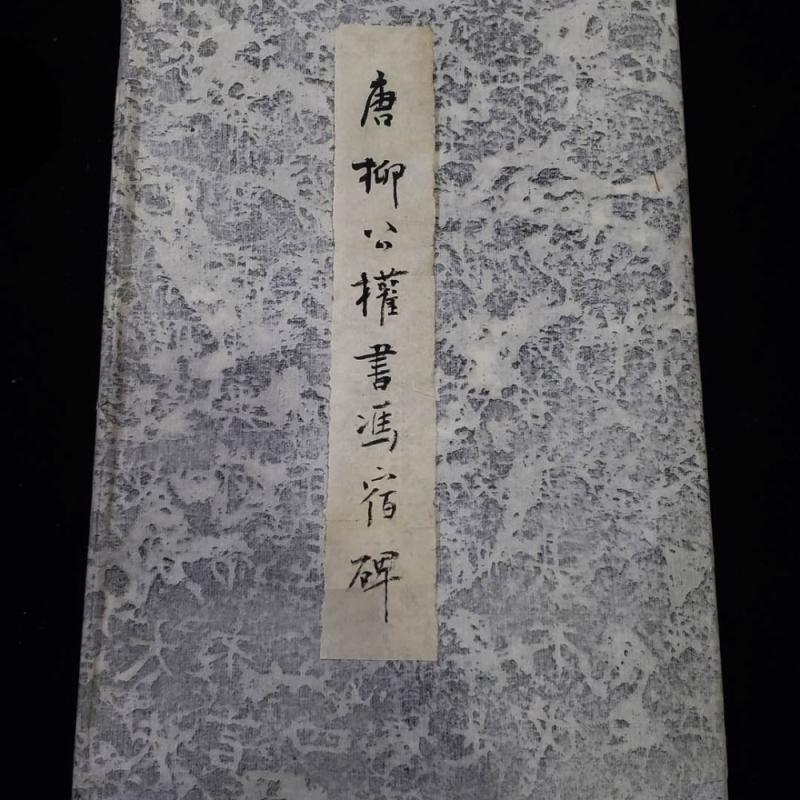 唐柳公權書馮宿碑